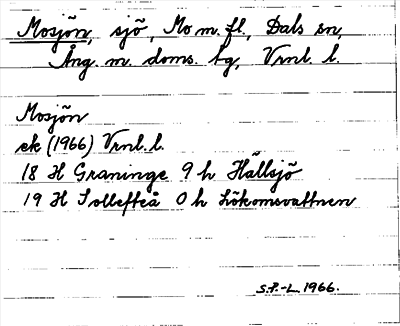 Mosjön, sjö, Mo m. fl., Dals sn,
Ång. m. doms. bg, Vrnl. l.
Mosjön
ek (1966) Vrnl. l.
18 H Graninge 9 h Hällsjö
19 H Sollefteå 0 h Lökomsvattnen
S.P.-L. 1966.